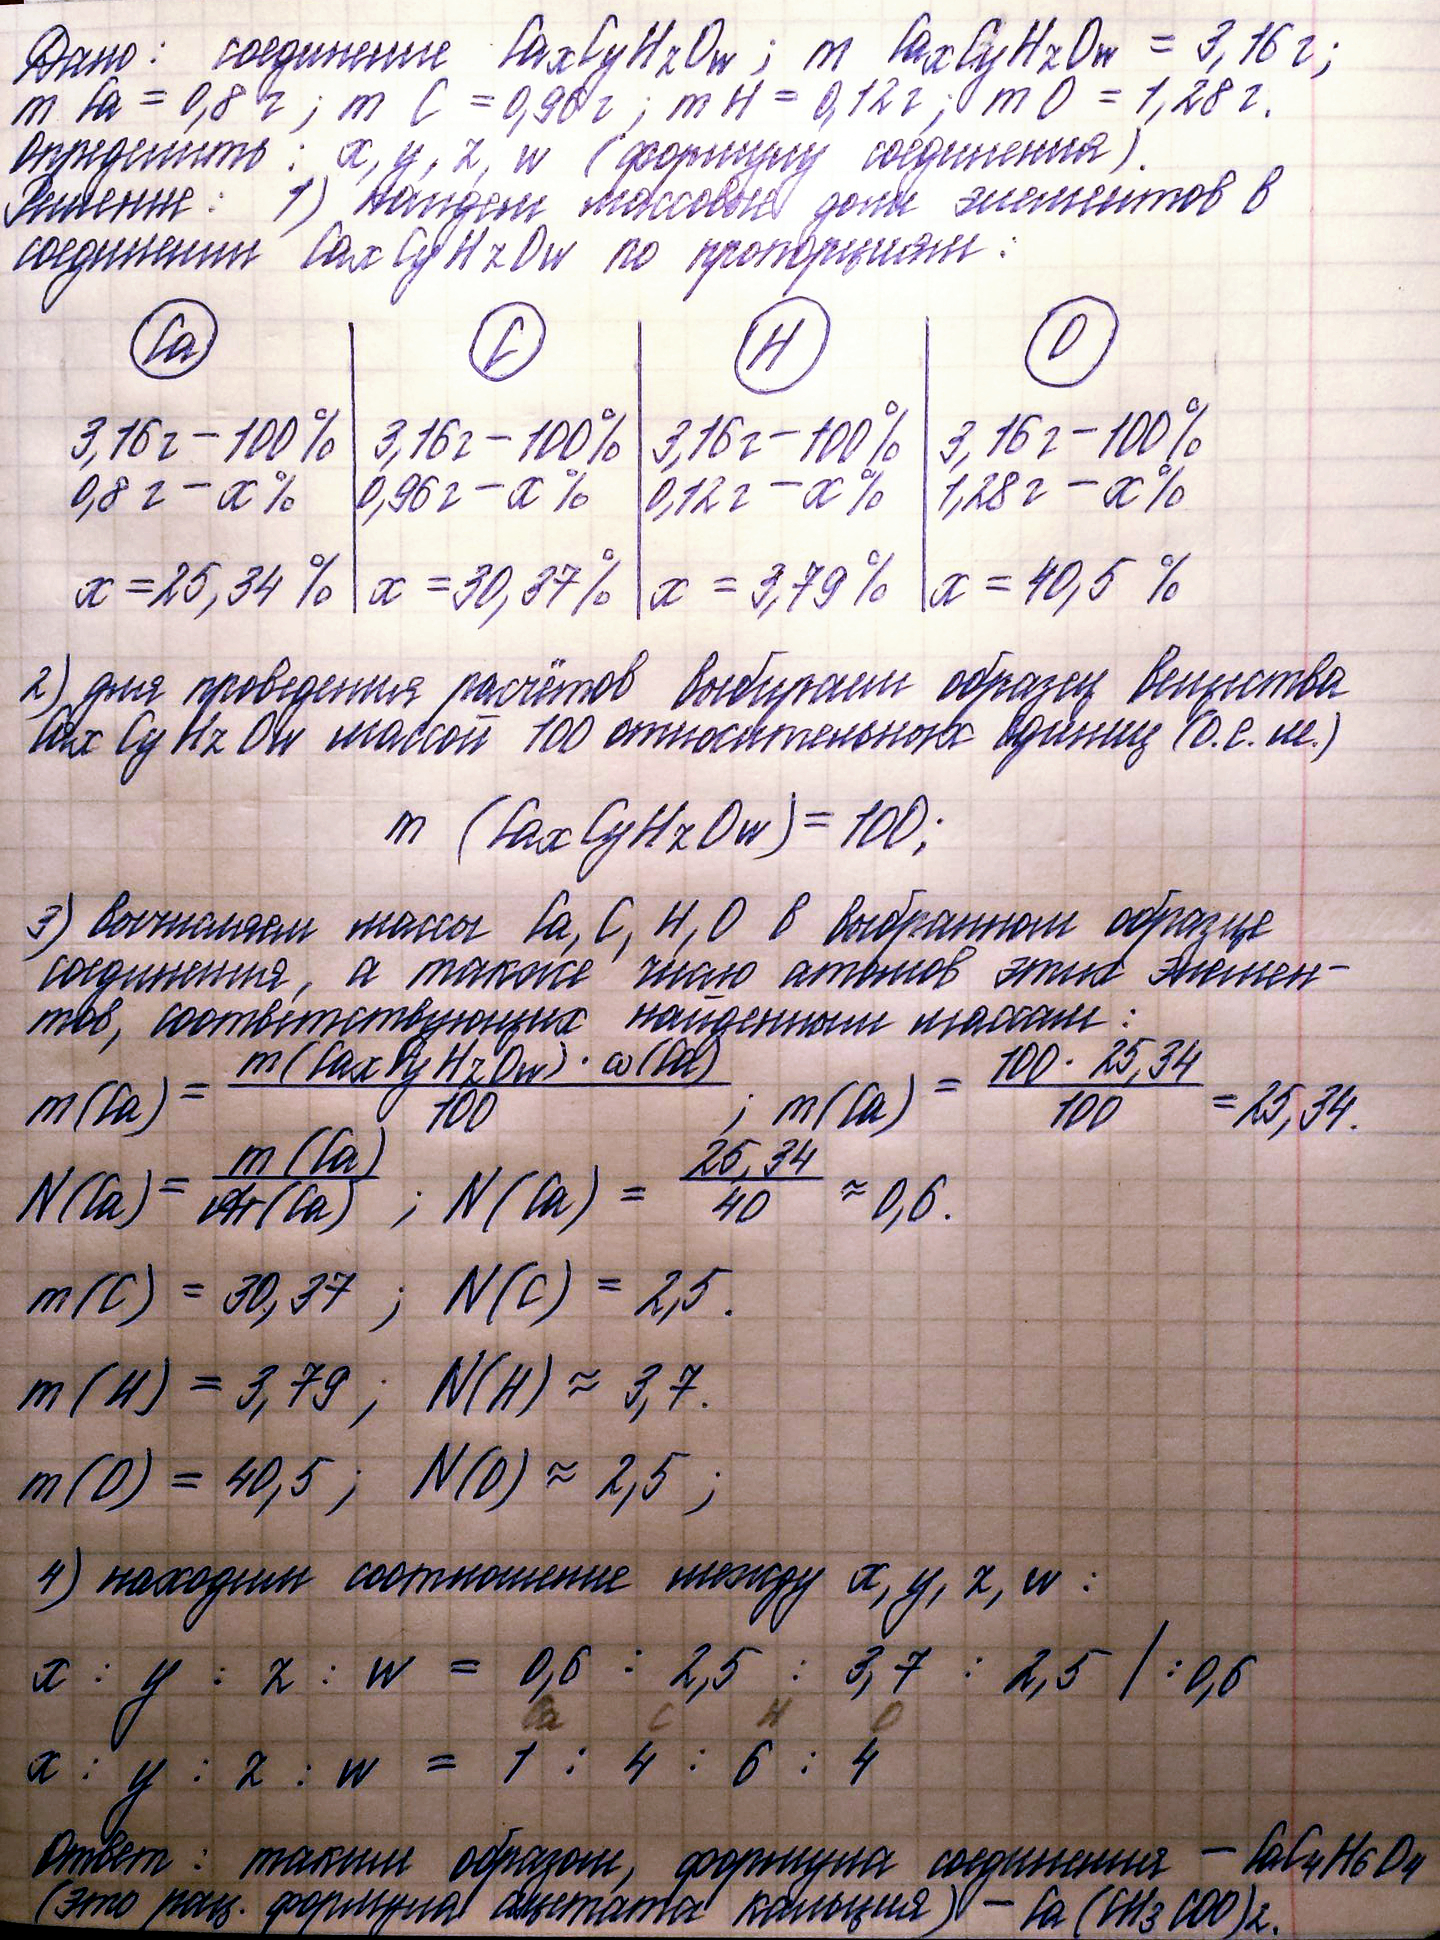 Дано: соединение CaxCyHzOw; m CaxCyHzOw = 3,16 г;
m Ca = 0,8 г; m C = 0,96 г; m H = 0,12 г; m O = 1,28 г.
Определить: x, y, z, w (формулу соединения).
Решение: 1) найдем массовые доли элементов в
соединении CaxCyHzOw по пропорциям:
Ca C H O
3,16 г – 100% 3,16 г – 100% 3,16 г – 100% 3,16 г – 100%
0,8 г – x% 0,96 г – x% 0,12 г – x% 1,28 г – x%
x = 25,34 % x = 30,37% x = 3,79 % x = 40,5 %
2) для проведения расчётов выбираем образец вещества
CaxCyHzOw массой 100 относительных единиц (о.е.м.)
m (CaxCyHzOw) = 100;
3) вычисляем массы Ca, C, H, O в выбранном образце
соединения, а также число атомов этих элемен-
тов, соответствующих найденным массам:
m(Ca) = m(CaxCyHzOw) · ω(Ca) / 100 ; m(Ca) = 100 · 25,34 / 100 = 25,34.
N(Ca) = m(Ca) / Ar(Ca) ; N(Ca) = 25,34 / 40 ≈ 0,6.
m(C) = 30,37 ; N(C) = 2,5.
m(H) = 3,79 ; N(H) ≈ 3,7.
m(O) = 40,5 ; N(O) ≈ 2,5 ;
4) находим соотношение между x, y, z, w :
x : y : z : w = 0,6 : 2,5 : 3,7 : 2,5 | : 0,6
Ca C H O
x : y : z : w = 1 : 4 : 6 : 4
Ответ: таким образом, формула соединения – CaC4H6O4
(это рац. формула ацетата кальция) – Ca(CH3COO)2.